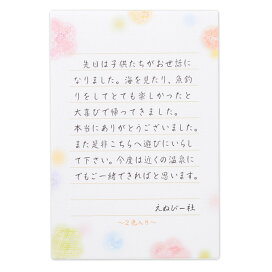 先日は子供たちがお世話に
なりました。海を見たり、魚釣
りをしてとても楽しかったと
大喜びで帰ってきました。
本当にありがとうございました。
また是非こちらへ遊びにいらし
て下さい。今度は近くの温泉に
でもご一緒できればと思います。
えぬびー社